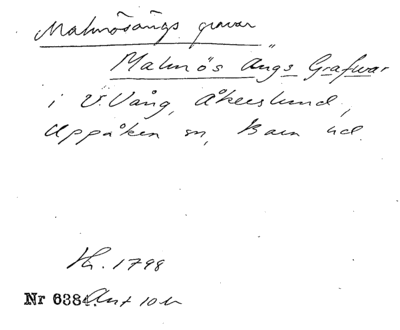 Malmösängs gravar
Malmös Ängs Grafwar
i V. Vång, Åkerslund,
Uppåkra sn, Bara hd.
Hr. 1798
Nr 638 Ant 10